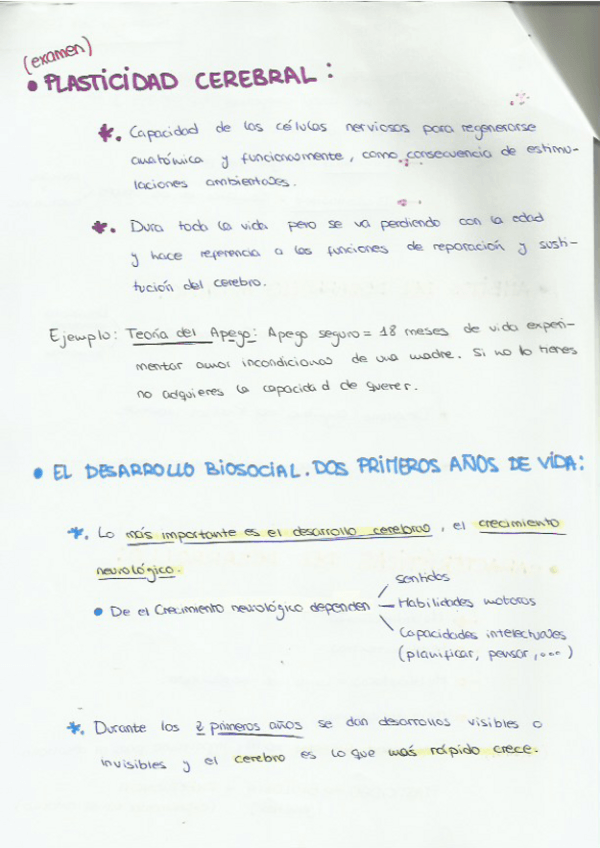 (examen)
• PLASTICIDAD CEREBRAL:
*. Capacidad de las células nerviosas para regenerarse
anatómica y funcionalmente, como consecuencia de estimu-
laciones ambientales.
*. Dura toda la vida pero se va perdiendo con la edad
y hace referencia a las funciones de reparación y susti-
tución del cerebro.
Ejemplo: Teoría del Apego: Apego seguro = 18 meses de vida experi-
mentar amor incondicional de una madre. Si no lo tienes
no adquieres la capacidad de querer.
• EL DESARROLLO BIOSOCIAL. DOS PRIMEROS AÑOS DE VIDA:
*. Lo más importante es el desarrollo cerebral, el crecimiento
neurológico.
sentidos
• De el Crecimiento neurológico dependen — Habilidades motoras
Capacidades intelectuales
(planificar, pensar,...)
*. Durante los 2 primeros años se dan desarrollos visibles o
invisibles y el cerebro es lo que más rápido crece.